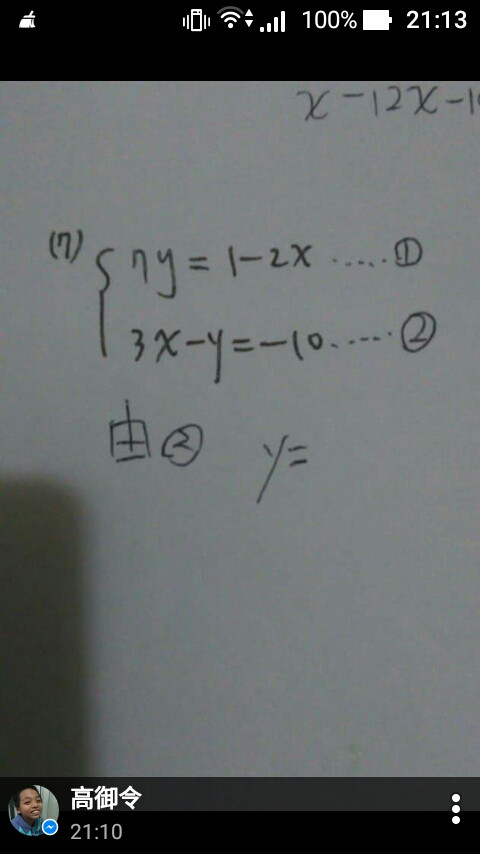 100% 21:13
x-12x-1
(7) { 7y=1-2x ..... ①
3x-y=-10...... ②
由② y=
高御令
21:10